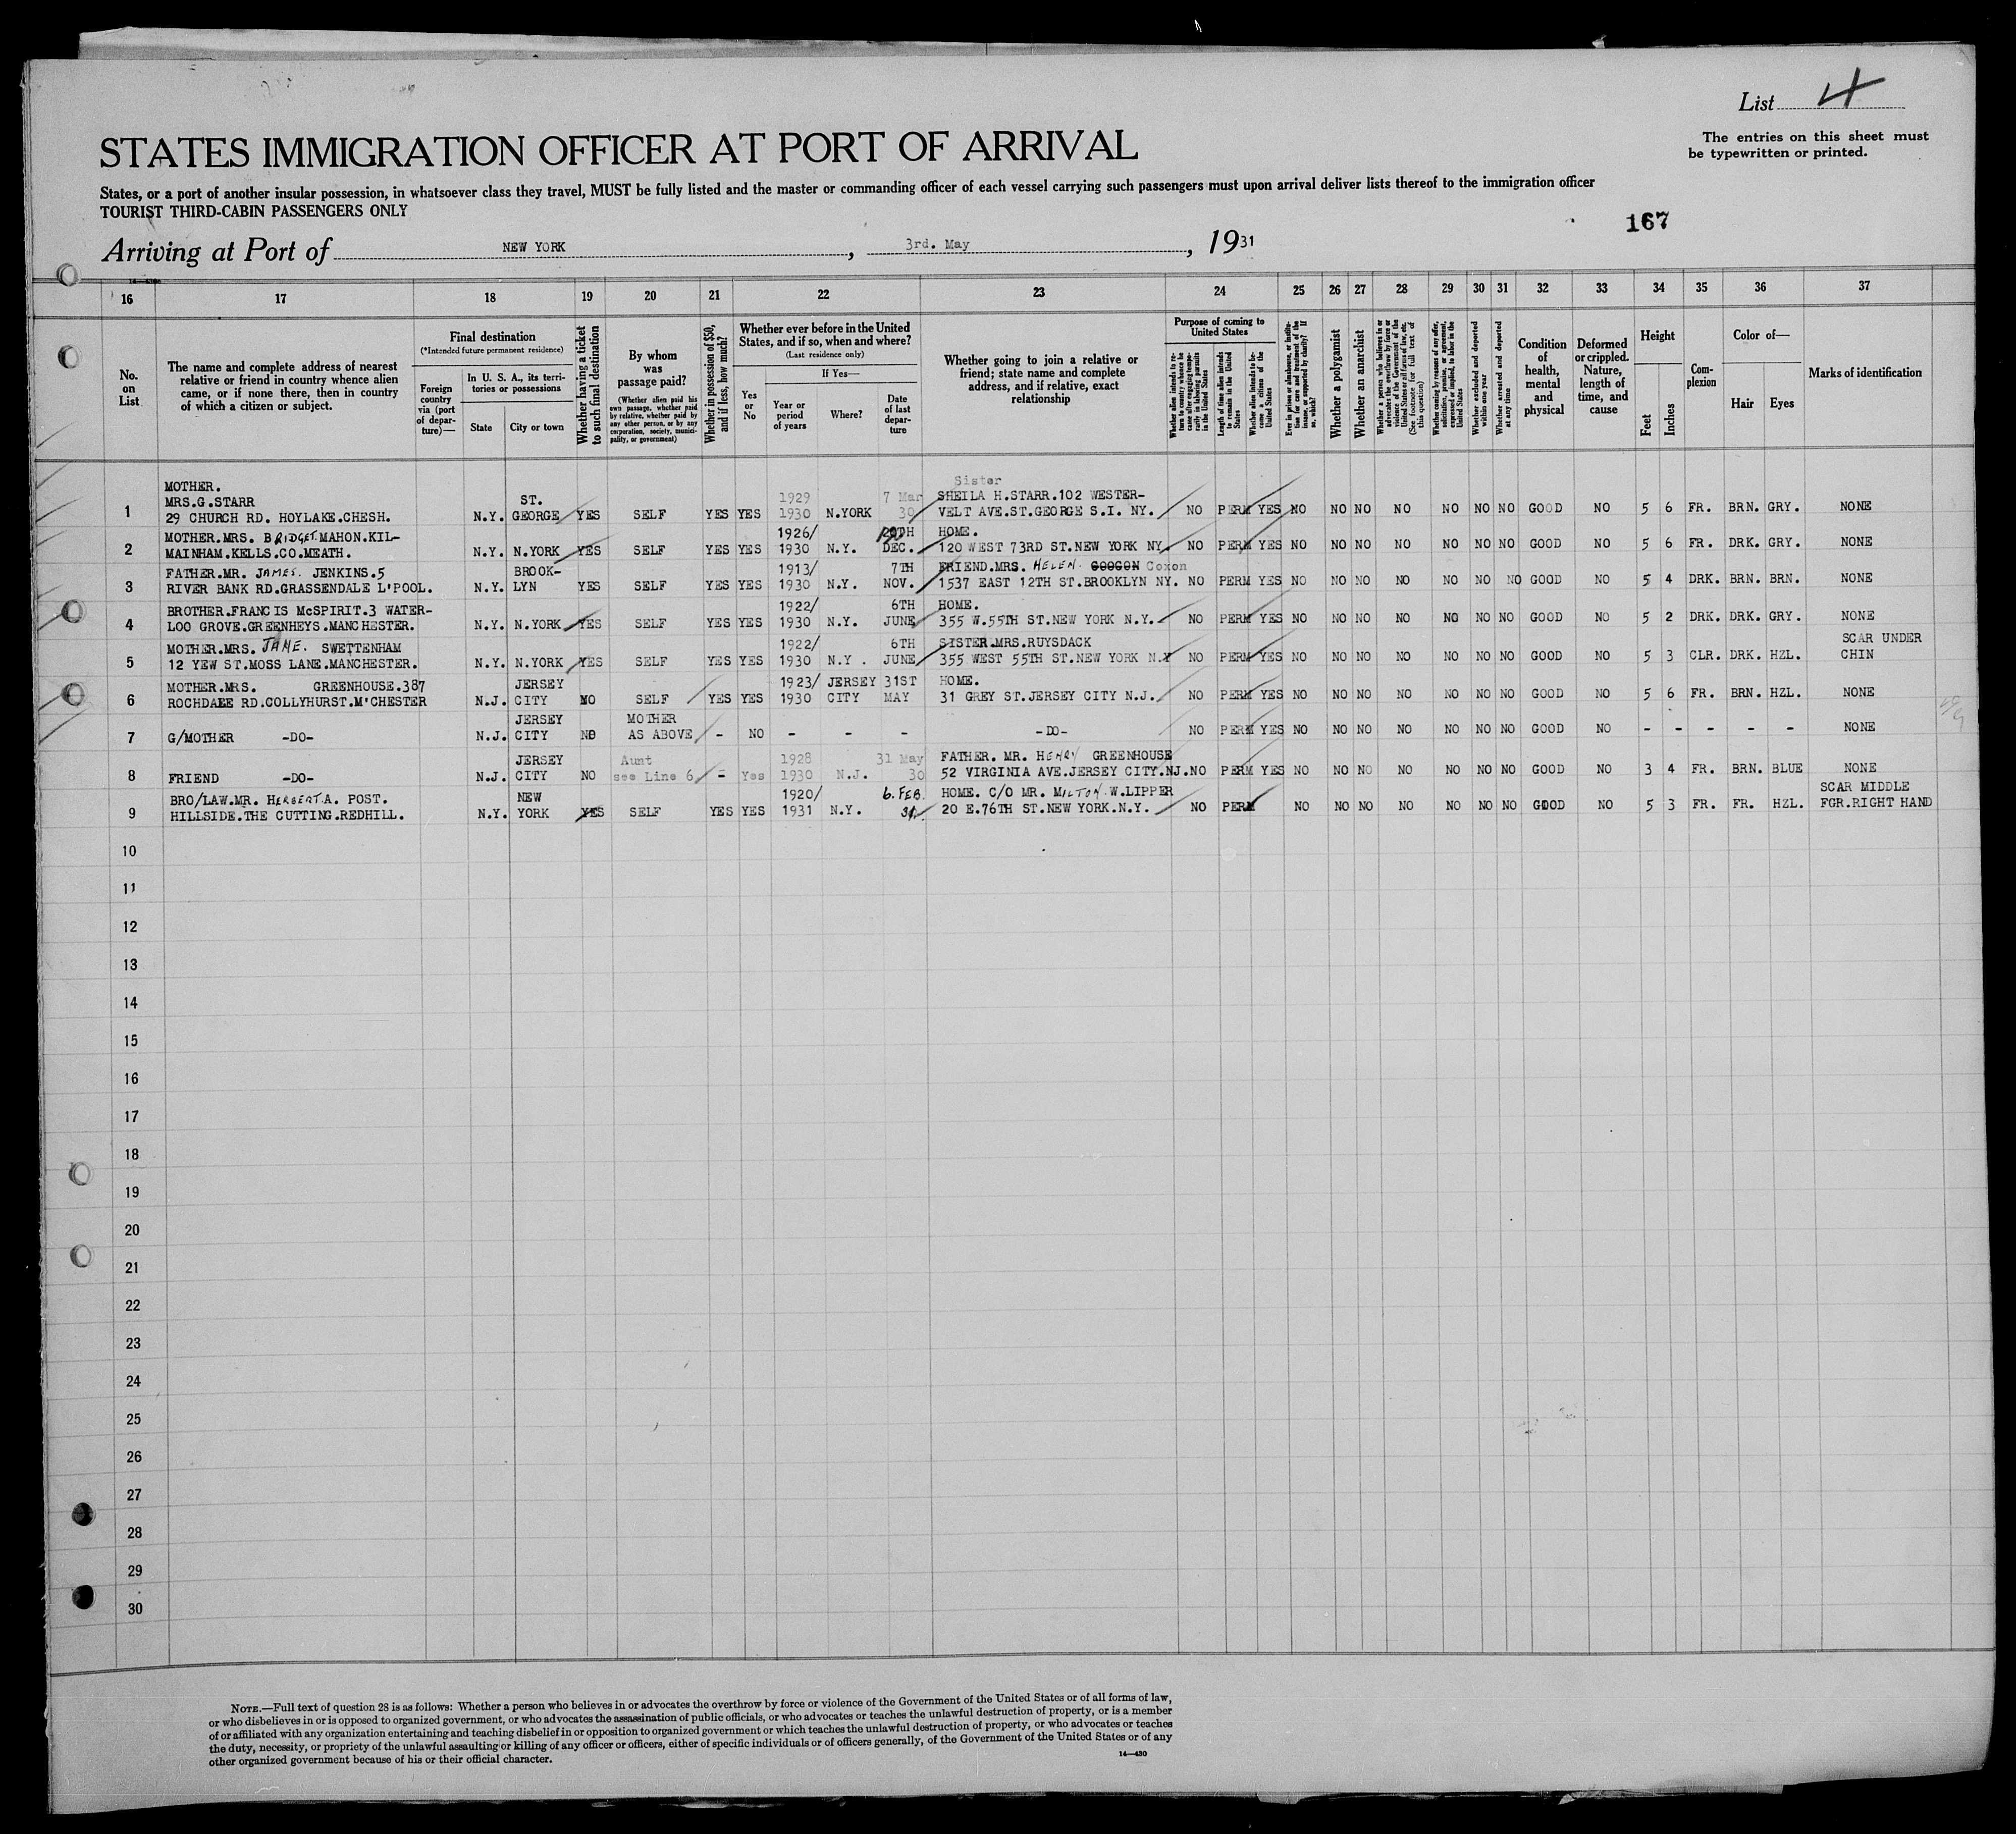 List 4
The entries on this sheet must
be typewritten or printed.
STATES IMMIGRATION OFFICER AT PORT OF ARRIVAL
States, or a port of another insular possession, in whatsoever class they travel, MUST be fully listed and the master or commanding officer of each vessel carrying such passengers must upon arrival deliver lists thereof to the immigration officer
TOURIST THIRD-CABIN PASSENGERS ONLY
167
Arriving at Port of NEW YORK, 3rd. May, 1931
16 17 18 19 20 21 22 23 24 25 26 27 28 29 30 31 32 33 34 35 36 37
No.
on
List
The name and complete address of nearest
relative or friend in country whence alien
came, or if none there, then in country
of which a citizen or subject.
Final destination
(*Intended future permanent residence)
Foreign
country
via (port
of depar-
ture)—
In U. S. A., its terri-
tories or possessions
State
City or town
Whether having a ticket
to such final destination
By whom
was
passage paid?
(Whether alien paid his
own passage, whether paid
by relative, whether paid by
any other person, or by any
corporation, society, munici-
pality, or government)
Whether in possession of $50,
and if less, how much?
Whether ever before in the United
States, and if so, when and where?
(Last residence only)
Yes
or
No
If Yes—
Year or
period
of years
Where?
Date
of last
depar-
ture
Whether going to join a relative or
friend; state name and complete
address, and if relative, exact
relationship
Purpose of coming to
United States
Length of time alien intends
to remain in the United
States
Whether alien intends to be-
come a citizen of the
United States
Whether a polygamist
Whether an anarchist
Whether excluded and deported
within one year
Whether arrested and deported
at any time
Condition
of
health,
mental
and
physical
Deformed
or crippled.
Nature,
length of
time, and
cause
Height
Feet
Inches
Com-
plexion
Color of—
Hair
Eyes
Marks of identification
MOTHER. Sister
MRS.G.STARR ST. 1929 7 Mar SHEILA H.STARR.102 WESTER-
1 29 CHURCH RD. HOYLAKE.CHESH. N.Y. GEORGE YES SELF YES YES 1930 N.YORK 30 VELT AVE.ST.GEORGE S.I. NY. NO PERM YES NO NO NO NO NO NO NO GOOD NO 5 6 FR. BRN. GRY. NONE
MOTHER.MRS. BRIDGET.MAHON.KIL- 1926/ 20TH HOME.
2 MAINHAM.KELLS.CO.MEATH. N.Y. N.YORK YES SELF YES YES 1930 N.Y. DEC. 120 WEST 73RD ST.NEW YORK NY. NO PERM YES NO NO NO NO NO NO NO GOOD NO 5 6 FR. DRK. GRY. NONE
FATHER.MR. JAMES. JENKINS.5 BROOK- 1913/ 7TH FRIEND.MRS. HELEN. GOOGON Coxon
3 RIVER BANK RD.GRASSENDALE L'POOL. N.Y. LYN YES SELF YES YES 1930 N.Y. NOV. 1537 EAST 12TH ST.BROOKLYN NY. NO PERM YES NO NO NO NO NO NO NO GOOD NO 5 4 DRK. BRN. BRN. NONE
BROTHER.FRANCIS McSPIRIT.3 WATER- 1922/ 6TH HOME.
4 LOO GROVE.GREENHEYS.MANCHESTER. N.Y. N.YORK YES SELF YES YES 1930 N.Y. JUNE 355 W.55TH ST.NEW YORK N.Y. NO PERM YES NO NO NO NO NO NO NO GOOD NO 5 2 DRK. DRK. GRY. NONE
MOTHER.MRS. JANE. SWETTENHAM 1922/ 6TH SISTER.MRS.RUYSDACK SCAR UNDER
5 12 YEW ST.MOSS LANE.MANCHESTER. N.Y. N.YORK YES SELF YES YES 1930 N.Y. JUNE 355 WEST 55TH ST.NEW YORK N.Y NO PERM YES NO NO NO NO NO NO NO GOOD NO 5 3 CLR. DRK. HZL. CHIN
MOTHER.MRS. GREENHOUSE.387 JERSEY 1923/ JERSEY 31ST HOME.
6 ROCHDALE RD.COLLYHURST.M'CHESTER N.J. CITY NO SELF YES YES 1930 CITY MAY 31 GREY ST.JERSEY CITY N.J. NO PERM YES NO NO NO NO NO NO NO GOOD NO 5 6 FR. BRN. HZL. NONE
JERSEY MOTHER
7 G/MOTHER -DO- N.J. CITY NO AS ABOVE - NO - - - -DO- NO PERM YES NO NO NO NO NO NO NO GOOD NO - - - - - NONE
JERSEY Aunt 1928 31 May FATHER. MR. HENRY GREENHOUSE
8 FRIEND -DO- N.J. CITY NO see Line 6 - Yes 1930 N.J. 30 52 VIRGINIA AVE.JERSEY CITY.NJ. NO PERM YES NO NO NO NO NO NO NO GOOD NO 3 4 FR. BRN. BLUE NONE
BRO/LAW.MR. HERBERT.A. POST. NEW 1920/ 6. FEB. HOME. C/O MR. MILTON W.LIPPER SCAR MIDDLE
9 HILLSIDE.THE CUTTING.REDHILL. N.Y. YORK YES SELF YES YES 1931 N.Y. 31. 20 E.76TH ST.NEW YORK.N.Y. NO PERM NO NO NO NO NO NO NO GOOD NO 5 3 FR. FR. HZL. FGR.RIGHT HAND
10
11
12
13
14
15
16
17
18
19
20
21
22
23
24
25
26
27
28
29
30
NOTE.—Full text of question 28 is as follows: Whether a person who believes in or advocates the overthrow by force or violence of the Government of the United States or of all forms of law,
or who disbelieves in or is opposed to organized government, or who advocates the assassination of public officials, or who advocates or teaches the unlawful destruction of property, or is a member
of or affiliated with any organization entertaining and teaching disbelief in or opposition to organized government or which teaches the unlawful destruction of property, or who advocates or teaches
the duty, necessity, or propriety of the unlawful assaulting or killing of any officer or officers, either of specific individuals or of officers generally, of the Government of the United States or of any
other organized government because of his or their official character.
14—430